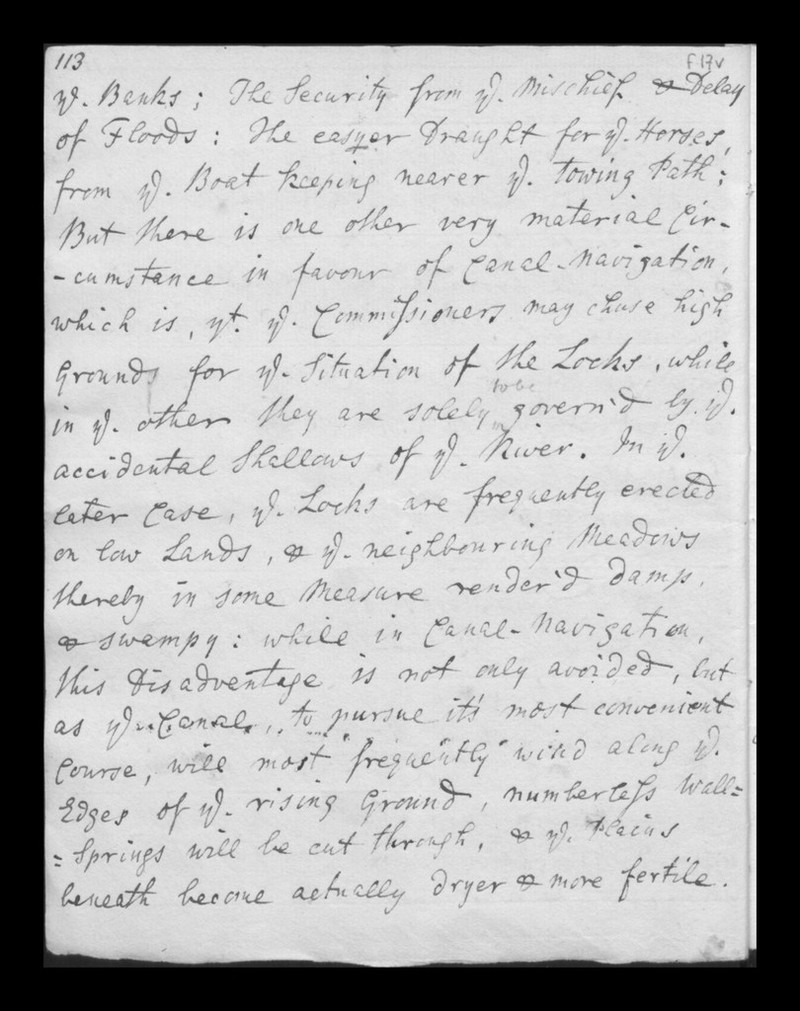 113
f 17v
ye. Banks; The Security from ye. Mischief & Delay
of Floods: The easyer Draught for ye. Horses,
from ye. Boat keeping nearer ye. Towing Path:
But there is one other very material Cir-
-cumstance in favour of Canal-Navigation,
which is, yt. ye. Commissioners may chuse high
Grounds for ye. Situation of the Locks, while
to be
in ye. other they are solely govern'd by ye.
accidental Shallows of ye. River. In ye.
later Case, ye. Locks are frequently erected
on low Lands, & ye. neighbouring Meadows
thereby in some Measure render'd damp,
& swampy: while in Canal-Navigation,
this Disadventage is not only avoided, but
as ye. Canal, to pursue it's most convenient
Course, will most frequently wind along ye.
Edges of ye. rising Ground, numberless Wall=
=Springs will be cut through, & ye. Plains
beneath become actually dryer & more fertile.